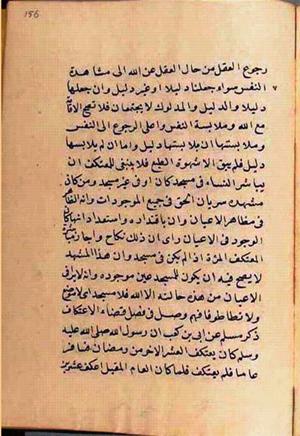 156
رجوع العقل من حال العقل عن الله الى مشاهدة
النفس سواء جعلنا دليلا او غير دليل وان جعلها
دليلا والدليل والمدلول لا يجتمعان فلا تصح الاقامة
مع الله وملابسة النفس واعلى الرجوع الى النفس
وملابستها ان يلابستها دليل واما ان لم يلابسها
دليل فلم يبق الا شهوة الطبع فلا ينبغي للمعتكف ان
يباشر النساء في مسجد كان او في غير مسجد ومن كان
مشهده سريان الحق في جميع الموجودات وانه الظاهر
في مظاهر الاعيان وان باقتداره واستعداداتها كان
الوجود في الاعيان راى ان ذلك نكاح واجاز مباشرة
المعتكف المرة اذ لم يكن في مسجد وان هذا المشهد
لا يصح فيه ان يكون للمسجد عين موجوده وانه لا يرى في
الاعيان من هذه حالته الا الله فلا مسجد اى لا موضع
ولا تطاطؤ فافهم وصل في فصل قضاء الاعتكاف
ذكر مسلم عن ابي بن كعب ان رسول الله صلى الله عليه
وسلم كان يعتكف العشر الاخر من رمضان فسافر
عاما فلم يعتكف فلما كان العام المقبل اعتكف عشرين